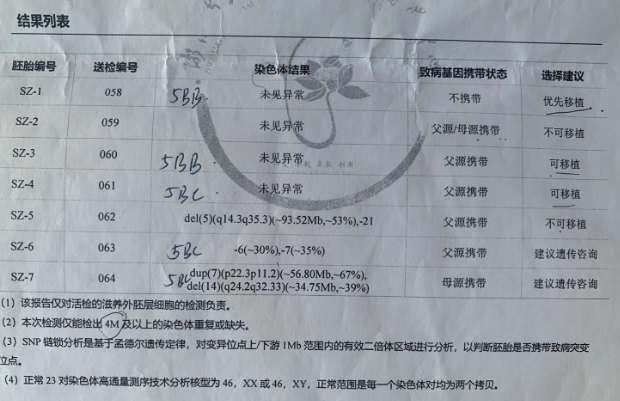 结果列表
胚胎编号 送检编号 染色体结果 致病基因携带状态 选择建议
SZ-1 058 5BB. 未见异常 不携带 优先移植
SZ-2 059 未见异常 父源/母源携带 不可移植
SZ-3 060 5BB 未见异常 父源携带 可移植
SZ-4 061 5BC 未见异常 父源携带 可移植
SZ-5 062 del(5)(q14.3q35.3)(~93.52Mb,~53%),-21 父源携带 不可移植
SZ-6 063 5BC -6(~30%),-7(~35%) 父源携带 建议遗传咨询
SZ-7 064 5BC dup(7)(p22.3p11.2)(~56.80Mb,~67%), 母源携带 建议遗传咨询
del(14)(q24.2q32.33)(~34.75Mb,~39%)
(1) 该报告仅对活检的滋养外胚层细胞的检测负责。
(2) 本次检测仅能检出 4M 及以上的染色体重复或缺失。
(3) SNP 链锁分析是基于孟德尔遗传定律，对变异位点上/下游 1Mb 范围内的有效二倍体区域进行分析，以判断胚胎是否携带致病突变
位点。
(4) 正常 23 对染色体高通量测序技术分析核型为 46，XX 或 46，XY，正常范围是每一个染色体对均为两个拷贝。